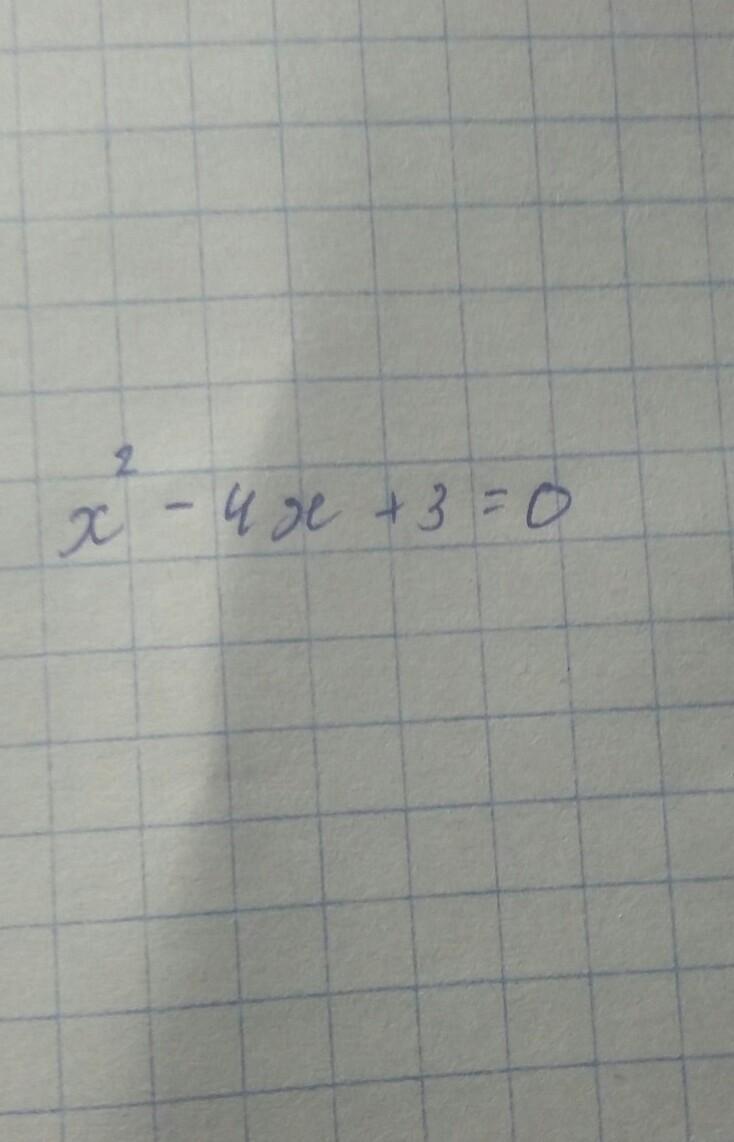 x² - 4x + 3 = 0